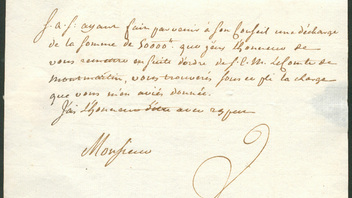 S. A. S. ayant fait parvenir à son Conseil une décharge
de la somme de 50000# que j'eus l'honneur de
vous remettre en suite d'ordre de S. E. M. Le Comte de
vous trouverés sous ce pli la charge
que vous m'en aviés donnée.
J'ai l'honneur d'être avec respect
Monsieur